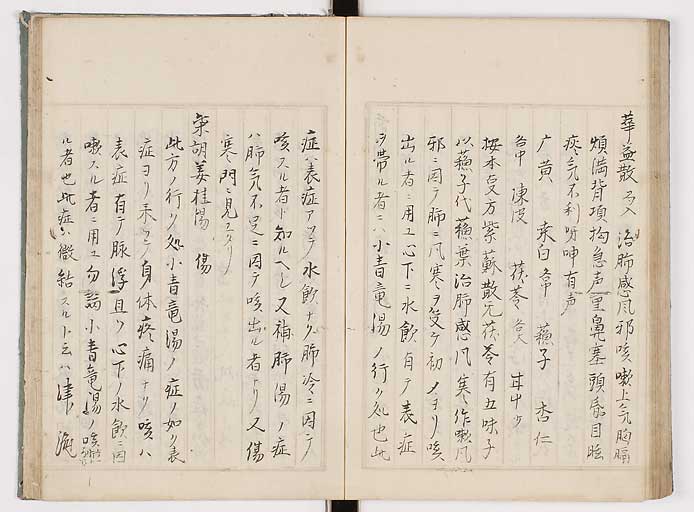 華蓋散 治肺感風邪咳嗽上気胸膈
煩満背項拘急声重鼻塞頭昏目眩
痰気不利 有声
广黄 桒白 蘓子 杏仁
各中 陳皮 茯苓 甘少
按本 方紫蘇散无茯苓有五味子
以蘓子代蘓葉治肺感風寒作嗽凡
邪ニ因テ肺ニ風寒ヲ受ケ初メヨリ咳
出ル者ニ用ユ心下ニ水飲有テ表症
ヲ帯ル者ニハ小青竜湯ノ行ク処也此
症ハ表症アツテ水飲ナク肺冷ニ因テ
咳スル者ト知ルヘシ又補肺湯ノ症
ハ肺気不足ニ因テ咳出ル者ナリ又傷
寒門ニ見エタリ
柴胡姜桂湯 傷
此方ノ行ク処小青竜湯ノ症ノ如ク表
症ヨリ来ツテ身体疼痛ナク咳ハ
表症有テ脉浮且ツ心下ノ水飲ニ因
嗽スル者ニ用ユ勿論小青竜湯ノ咳
ル者也此症ハ微結スルト云ハ津